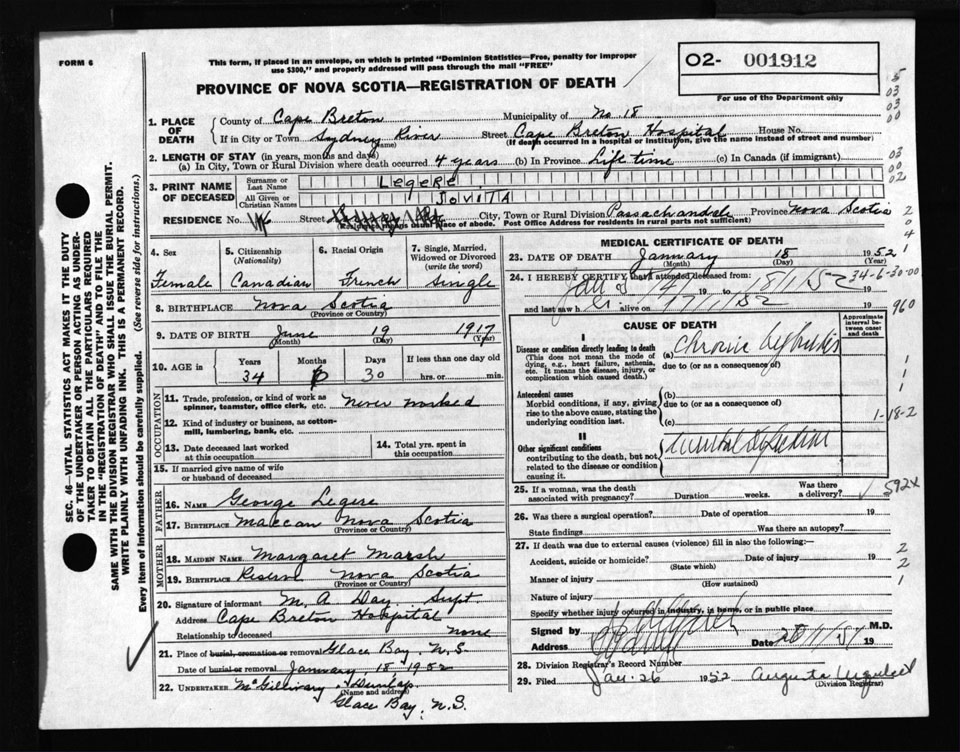 FORM 6
This form, if placed in an envelope, on which is printed "Dominion Statistics—Free, penalty for improper
use $300," and properly addressed will pass through the mail "FREE"
PROVINCE OF NOVA SCOTIA—REGISTRATION OF DEATH
O2- 001912
For use of the Department only
5
03
03
00
1. PLACE OF DEATH
County of Cape Breton Municipality of No. 18
If in City or Town Sydney River Street Cape Breton Hospital House No.
(Name) (If death occurred in a hospital or institution, give the name instead of street and number)
2. LENGTH OF STAY (in years, months and days)
(a) In City, Town or Rural Division where death occurred 4 years (b) In Province Life time (c) In Canada (if immigrant)
03
00
02
3. PRINT NAME OF DECEASED
Surname or Last Name LEGERE
All Given or Christian Names JOVITA
RESIDENCE No. Street City, Town or Rural Division Passachandale Province Nova Scotia
(Residence means usual place of abode. Post Office Address for residents in rural parts not sufficient)
2
0
4
1
4. Sex
Female
5. Citizenship
(Nationality)
Canadian
6. Racial Origin
French
7. Single, Married, Widowed or Divorced
(write the word)
Single
8. BIRTHPLACE Nova Scotia
(Province or Country)
9. DATE OF BIRTH June 19 1917
(Month) (Day) (Year)
10. AGE in Years Months Days If less than one day old
34 30 hrs. or min.
OCCUPATION
11. Trade, profession, or kind of work as spinner, teamster, office clerk, etc. Never worked
12. Kind of industry or business, as cotton-mill, lumbering, bank, etc.
13. Date deceased last worked at this occupation
14. Total yrs. spent in this occupation
15. If married give name of wife or husband of deceased
FATHER
16. NAME George Legere
17. BIRTHPLACE Maccan Nova Scotia
(Province or Country)
MOTHER
18. MAIDEN NAME Margaret Marsh
19. BIRTHPLACE Reserve Nova Scotia
(Province or Country)
20. Signature of informant M. A. Day. Supt
Address Cape Breton Hospital
Relationship to deceased none
21. Place of burial, cremation or removal Glace Bay, N.S.
Date of burial or removal January 18 1952
22. UNDERTAKER McGillivary & Dunlap
(Name and address)
Glace Bay, N.S.
MEDICAL CERTIFICATE OF DEATH
23. DATE OF DEATH January 18 1952
(Month) (Day) (Year)
24. I HEREBY CERTIFY that I attended deceased from:
19 to 18/1/52
34-6-30-00
and last saw h alive on 17/1/52
960
CAUSE OF DEATH
Approximate interval between onset and death
I
Disease or condition directly leading to death
(This does not mean the mode of dying, e.g., heart failure, asthenia, etc. It means the disease, injury, or complication which caused death.)
(a) Chronic
due to (or as a consequence of)
Antecedent causes
Morbid conditions, if any, giving rise to the above cause, stating the underlying condition last.
(b)
due to (or as a consequence of)
(c)
1
1
1
1-18-2
II
Other significant conditions
contributing to the death, but not related to the disease or condition causing it.
Mental
25. If a woman, was the death associated with pregnancy? Duration weeks. Was there a delivery?
592x
26. Was there a surgical operation? Date of operation 19
State findings Was there an autopsy?
27. If death was due to external causes (violence) fill in also the following:—
Accident, suicide or homicide? Date of injury 19
(State which)
Manner of injury
(How sustained)
Nature of injury
Specify whether injury occurred in industry, in home, or in public place
2
2
1
Signed by M.D.
Address Date 19
28. Division Registrar's Record Number
29. Filed Jan. 26 1952 Augusta
(Division Registrar)
SEC. 46—VITAL STATISTICS ACT MAKES IT THE DUTY
OF THE UNDERTAKER OR PERSON ACTING AS UNDER-
TAKER TO OBTAIN ALL THE PARTICULARS REQUIRED
IN THE "REGISTRATION OF DEATH" AND TO FILE THE
SAME WITH THE DIVISION REGISTRAR WHO SHALL ISSUE THE BURIAL PERMIT.
WRITE PLAINLY WITH UNFADING INK. THIS IS A PERMANENT RECORD.
Every item of information should be carefully supplied. (See reverse side for instructions.)